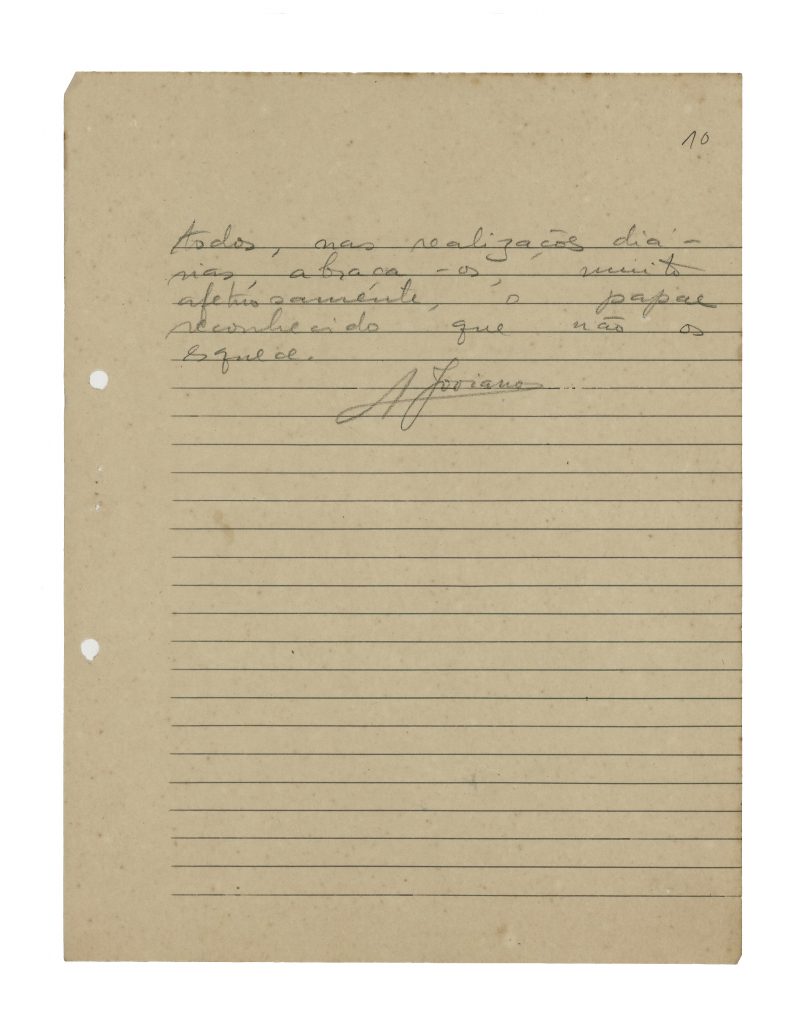 10
todos, nas realizações diá-
rias, abraça-os, muito
afetuosamente, o papae
reconhecido que não os
esquece.
A Joviano